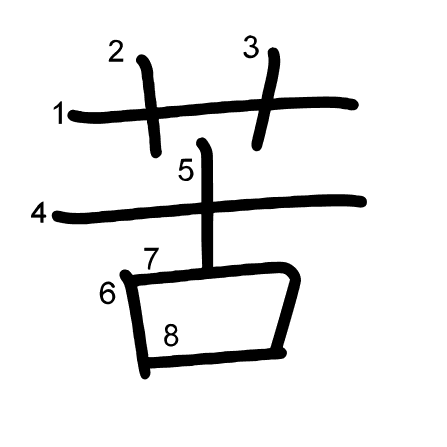 苦
1
2
3
4
5
6
7
8